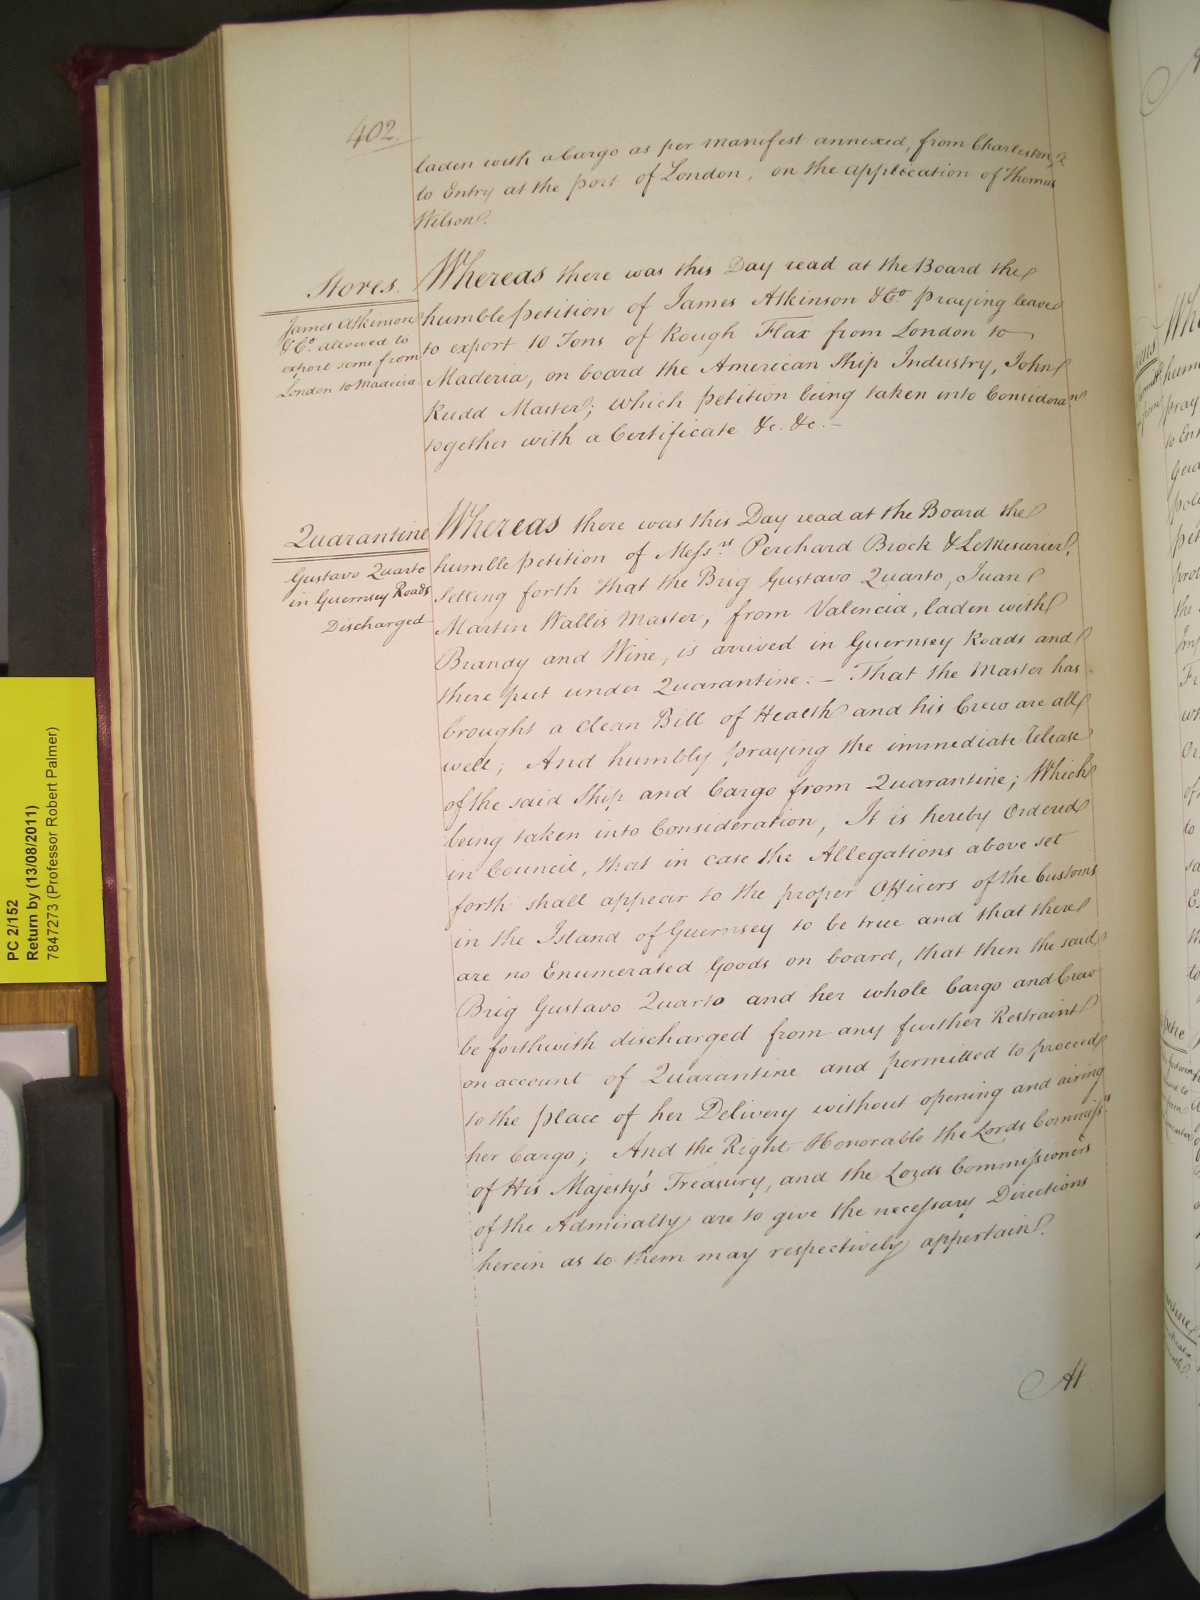 402.
laden with a Cargo as per manifest annexed, from Charleston,
to Entry at the port of London, on the application of Thomas
Wilson.
Stores.
James Atkinson
& Co. allowed to
export some from
London to Madeira.
Whereas there was this Day read at the Board the
humble petition of James Atkinson & Co. praying leave
to export 10 Tons of Rough Flax from London to
Maderia, on board the American Ship Industry, John
Rudd Master; which petition being taken into Consideran
together with a Certificate &c. &c.—
Quarantine
Gustavo Quarto
in Guernsey Roads
Discharged
Whereas there was this Day read at the Board the
humble petition of Messrs. Perchard Brock & LeMesurier,
Setting forth that the Brig Gustavo Quarto, Juan
Martin Wallis Master, from Valencia, laden with
Brandy and Wine, is arrived in Guernsey Roads and
there put under Quarantine:— That the Master has
brought a clean Bill of Health and his Crew are all
well; And humbly praying the immediate release
of the said Ship and Cargo from Quarantine; Which
being taken into Consideration, It is hereby Ordered
in Council, that in case the Allegations above set
forth shall appear to the proper Officers of the Customs
in the Island of Guernsey to be true and that there
are no Enumerated Goods on board, that then the said
Brig Gustavo Quarto and her whole Cargo and Crew
be forthwith discharged from any further Restraint
on account of Quarantine and permitted to proceed
to the place of her Delivery without opening and airing
her Cargo; And the Right Honorable the Lords Commissrs
of His Majesty's Treasury, and the Lords Commissioners
of the Admiralty are to give the necessary Directions
herein as to them may respectively appertain.
At
PC 2/152
Return by (13/08/2011)
7847273 (Professor Robert Palmer)